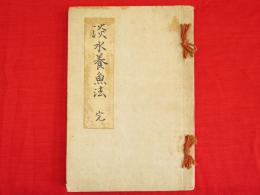 淡水養魚法 完